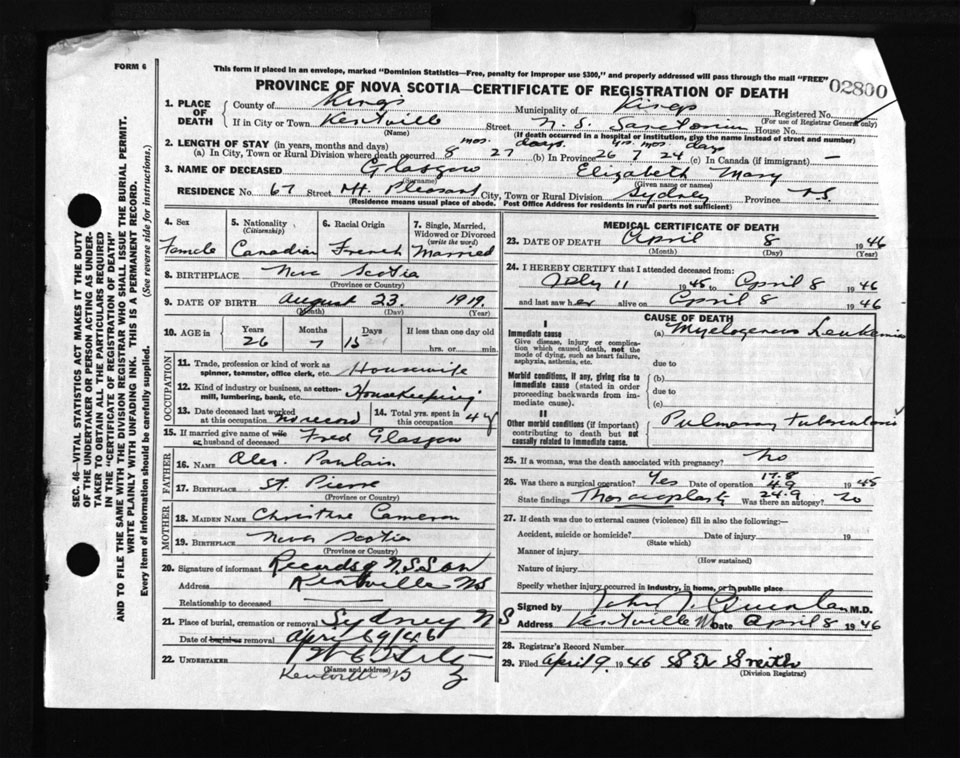 FORM 6
This form if placed in an envelope, marked "Dominion Statistics—Free, penalty for improper use $300," and properly addressed will pass through the mail "FREE"
PROVINCE OF NOVA SCOTIA—CERTIFICATE OF REGISTRATION OF DEATH
02800
1. PLACE OF DEATH
County of Kings Municipality of Kings Registered No.
(For use of Registrar General only)
If in City or Town Kentville Street N. S. Sanatorium House No.
(Name) (If death occurred in a hospital or institution, give the name instead of street and number)
2. LENGTH OF STAY (in years, months and days) mos. days. yrs. mos. days
(a) In City, Town or Rural Division where death occurred 8 27 (b) In Province 26 7 24 (c) In Canada (if immigrant) —
3. NAME OF DECEASED Glasgow Elizabeth Mary
(Surname) (Given name or names)
RESIDENCE No. 67 Street Mt. Pleasant City, Town or Rural Division Sydney Province N.S.
(Residence means usual place of abode. Post Office Address for residents in rural parts not sufficient)
4. Sex
Female
5. Nationality
(Citizenship)
Canadian
6. Racial Origin
French
7. Single, Married, Widowed or Divorced
(write the word)
Married
8. BIRTHPLACE Nova Scotia
(Province or Country)
9. DATE OF BIRTH August 23 1919
(Month) (Day) (Year)
10. AGE in Years Months Days If less than one day old
26 7 15 hrs. or min.
OCCUPATION
11. Trade, profession or kind of work as spinner, teamster, office clerk, etc. Housewife
12. Kind of industry or business, as cotton-mill, lumbering, bank, etc. Housekeeping
13. Date deceased last worked at this occupation no record
14. Total yrs. spent in this occupation 4 y
15. If married give name of wife or husband of deceased Fred Glasgow
FATHER
16. NAME Alex. Paulain
17. BIRTHPLACE St. Pierre
(Province or Country)
MOTHER
18. MAIDEN NAME Christine Cameron
19. BIRTHPLACE Nova Scotia
(Province or Country)
20. Signature of informant Records N.S. San
Address Kentville NS
Relationship to deceased
21. Place of burial, cremation or removal Sydney N S
Date of burial or removal April 9/46
22. UNDERTAKER
(Name and address)
Kentville NS
MEDICAL CERTIFICATE OF DEATH
23. DATE OF DEATH April 8 1946
(Month) (Day) (Year)
24. I HEREBY CERTIFY that I attended deceased from:
July 11 1945 to April 8 1946
and last saw her alive on April 8 1946
CAUSE OF DEATH
I
Immediate cause
Give disease, injury or complication which caused death, not the mode of dying, such as heart failure, asphyxia, asthenia, etc.
(a) Myelogenous Leukemia
due to
Morbid conditions, if any, giving rise to immediate cause (stated in order proceeding backwards from immediate cause).
(b)
due to
(c)
II
Other morbid conditions (if important) contributing to death but not causally related to immediate cause.
Pulmonary Tuberculosis
25. If a woman, was the death associated with pregnancy? No
26. Was there a surgical operation? Yes Date of operation 17.8 4.9 24.9 1945
State findings Thoracoplasty Was there an autopsy? no
27. If death was due to external causes (violence) fill in also the following:—
Accident, suicide or homicide? Date of injury 19
(State which)
Manner of injury
(How sustained)
Nature of injury
Specify whether injury occurred in industry, in home, or in public place
Signed by John J. Quinlan M.D.
Address Kentville NS Date April 8 1946
28. Registrar's Record Number
29. Filed April 9 1946 Smith
(Division Registrar)
SEC. 46—VITAL STATISTICS ACT MAKES IT THE DUTY
OF THE UNDERTAKER OR PERSON ACTING AS UNDER-
TAKER TO OBTAIN ALL THE PARTICULARS REQUIRED
IN THE "CERTIFICATE OF REGISTRATION OF DEATH"
AND TO FILE THE SAME WITH THE DIVISION REGISTRAR WHO SHALL ISSUE THE BURIAL PERMIT.
WRITE PLAINLY WITH UNFADING INK. THIS IS A PERMANENT RECORD.
Every item of information should be carefully supplied. (See reverse side for instructions.)